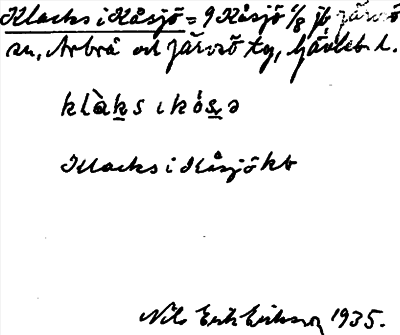 Klacks i Kåsjö = 9 Kåsjö 1/8 jb Järvsö
sn, Arbrå och Järvsö tg, Gävleb. l.
klàks ı kósə
Klacks i Kåsjö kb
Nils Erik Eriksson 1935.